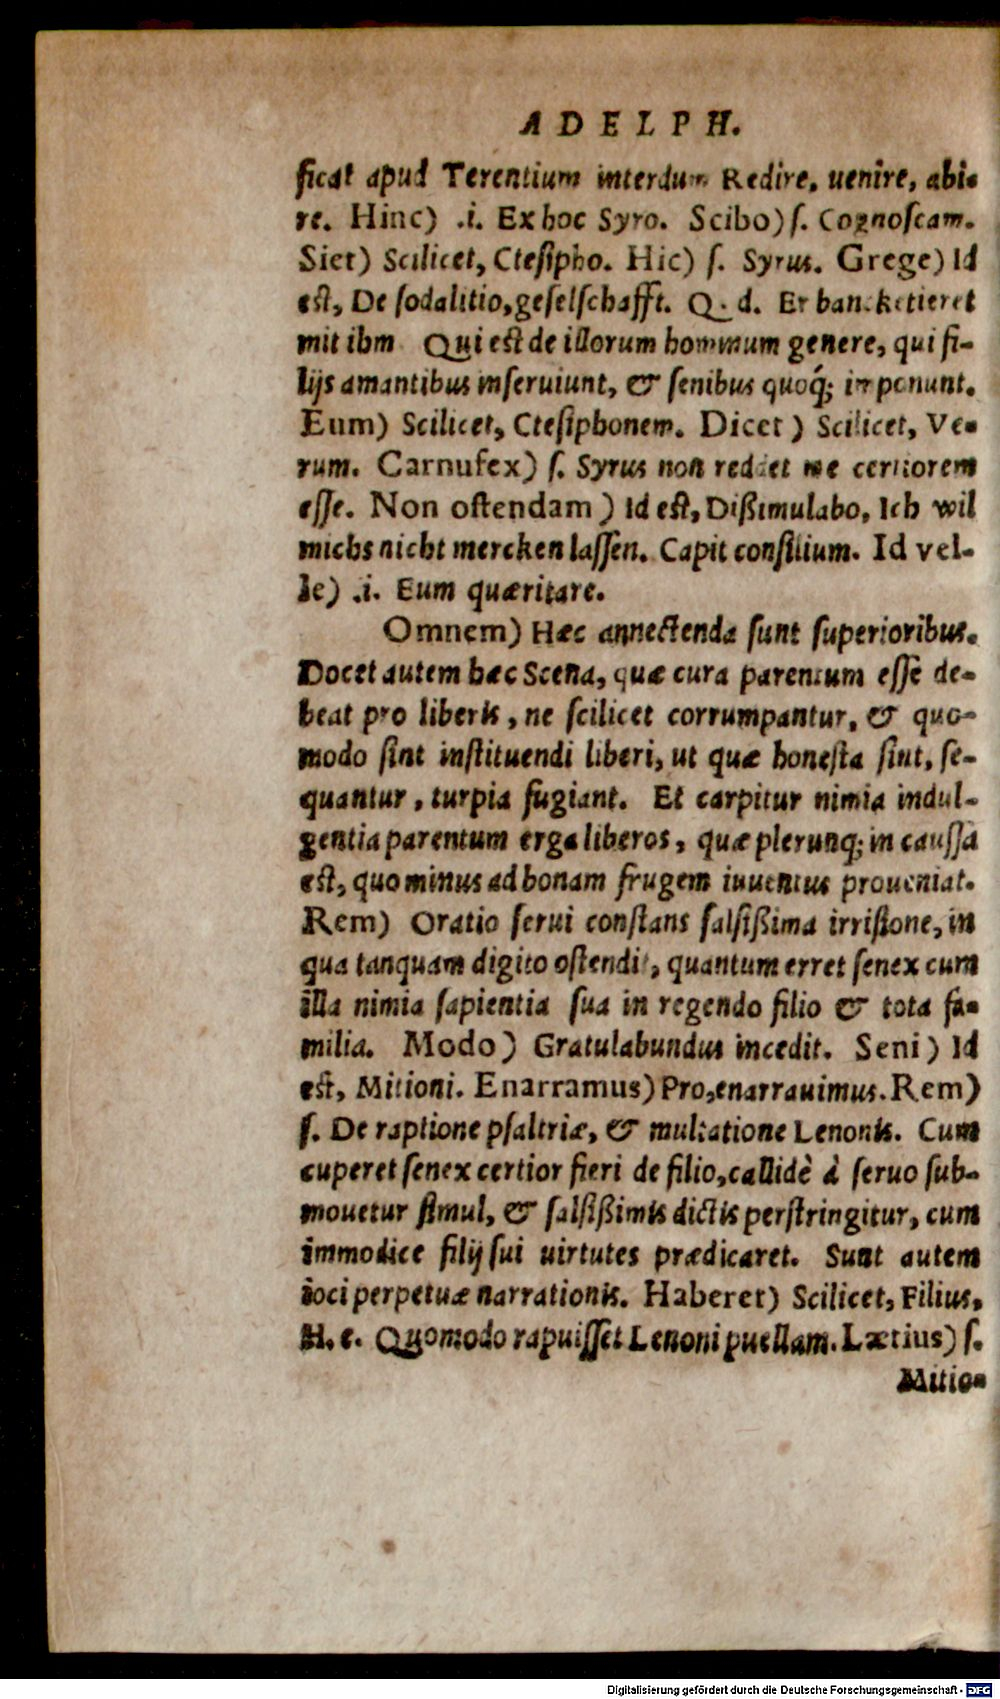 ADELPH.
ficat apud Terentium interdum Redire, uenire, abi-
re. Hinc) .i. Ex hoc Syro. Scibo) ſ. Cognoſcam.
Siet) Scilicet, Cteſipho. Hic) ſ. Syrus. Grege) Id
eſt, De ſodalitio, geſelſchafft. Q. d. Er bancketieret
mit ihm Qui eſt de illorum hominum genere, qui fi-
lijs amantibus inſeruiunt, & ſenibus quoq́; imponunt.
Eum) Scilicet, Cteſiphonem. Dicet) Scilicet, Ve-
rum. Carnufex) ſ. Syrus non reddet me certiorem
eſſe. Non oſtendam) Id eſt, Dißimulabo, Ich wil
michs nicht mercken laſſen. Capit conſilium. Id vel-
le) .i. Eum quæritare.
Omnem) Hæc annectenda ſunt ſuperioribus.
Docet autem hæc Scena, quæ cura parentum eſſe de-
beat pro liberis, ne ſcilicet corrumpantur, & quo-
modo ſint inſtituendi liberi, ut quæ honeſta ſint, ſe-
quantur, turpia fugiant. Et carpitur nimia indul-
gentia parentum erga liberos, quæ plerunq; in cauſſa
eſt, quo minus ad bonam frugem iuuentus proueniat.
Rem) Oratio ſerui conſtans ſalſißima irriſione, in
qua tanquam digito oſtendit, quantum erret ſenex cum
illa nimia ſapientia ſua in regendo filio & tota fa-
milia. Modo) Gratulabundus incedit. Seni) Id
eſt, Mitioni. Enarramus) Pro, enarrauimus. Rem)
ſ. De raptione pſaltriæ, & mulctatione Lenonis. Cum
cuperet ſenex certior fieri de filio, callidè à ſeruo ſub-
mouetur ſimul, & ſalſißimis dictis perſtringitur, cum
immodice filij ſui uirtutes prædicaret. Sunt autem
ioci perpetuæ narrationis. Haberet) Scilicet, Filius,
H. e. Quomodo rapuiſſet Lenoni puellam. Lætius) ſ.
Mitio-
Digitalisierung gefördert durch die Deutsche Forschungsgemeinschaft - DFG